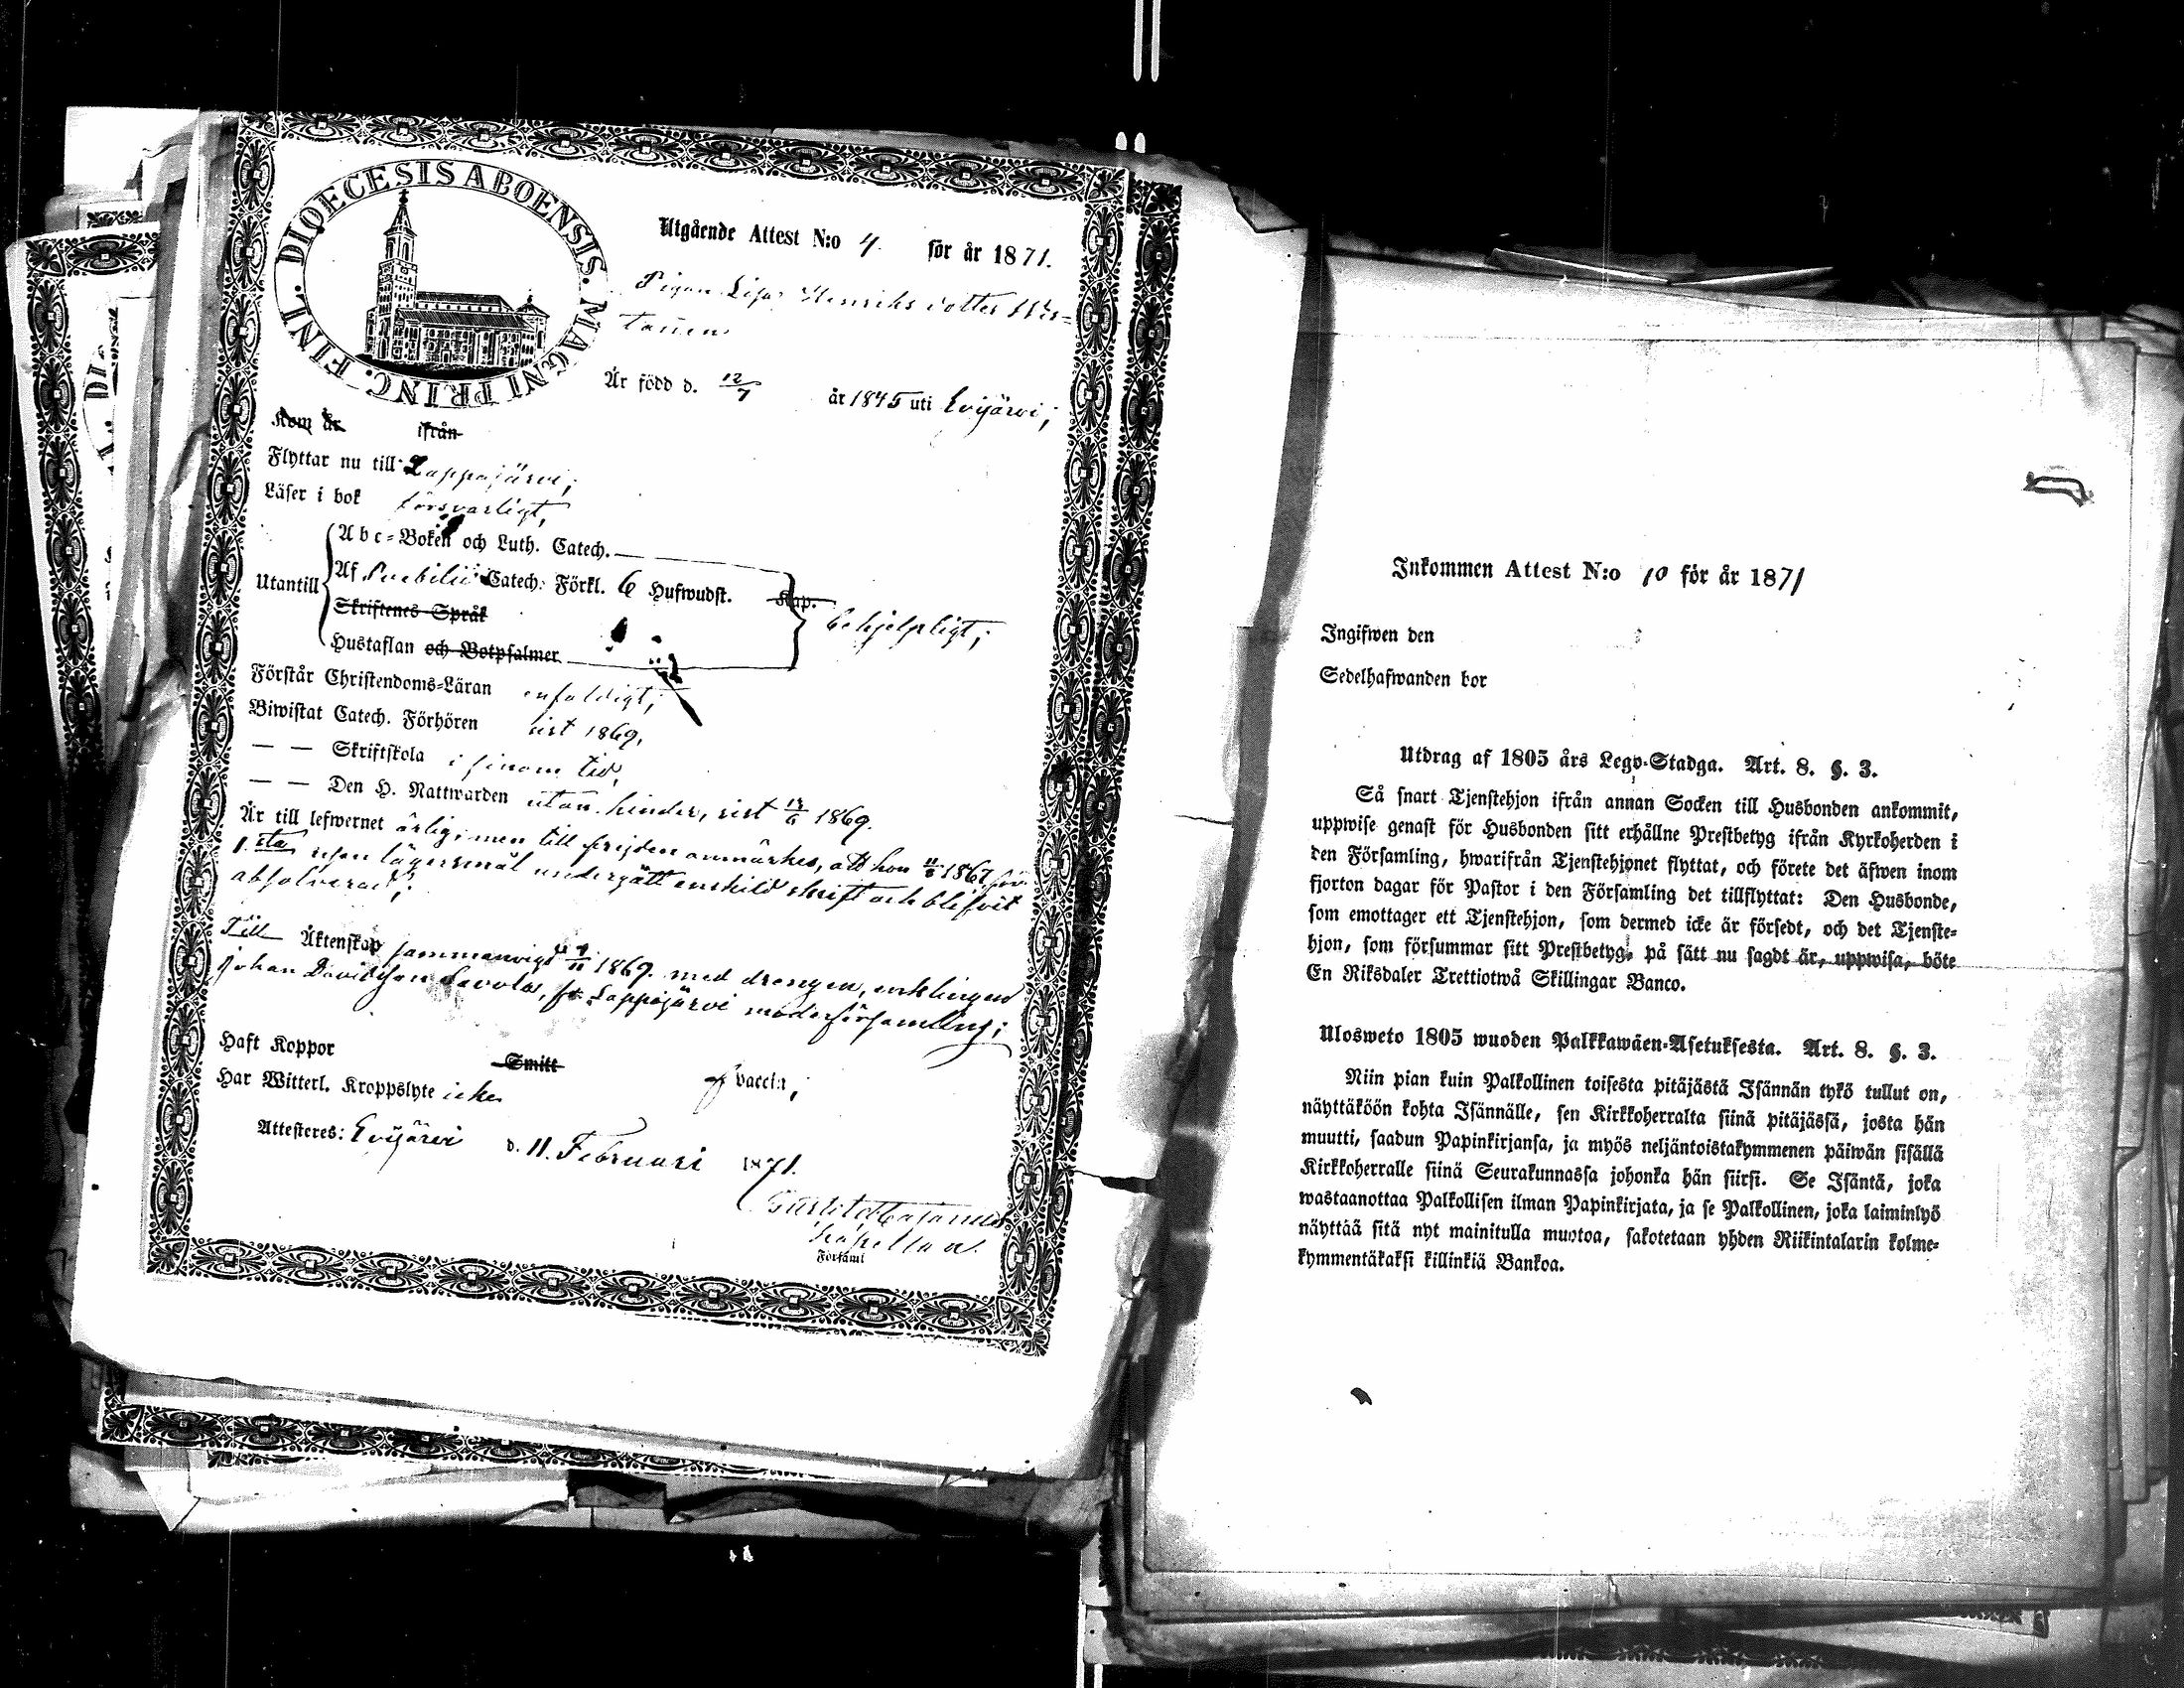 DIOECESIS ABOENSIS. MAGNI PRINC. FINL.
Utgående Attest N:o 4. för år 1871.
Pigan Lisa Henriks dotter
Är född d. 12/7 år 1845 uti Evijärvi;
Kom år ifrån
Flyttar nu till Lappajärvi;
Läser i bok försvarligt,
Utantill
Abc-Boken och Luth. Catech.
Af Catech. Förkl. 6 Hufwudst. Kap.
Skriftenes Språk
Hustaflan och Botpsalmer
behjelpligt;
Förstår Christendoms-Läran enfaldigt;
Biwistat Catech. Förhören sist 1869,
— — Skriftskola i sinom tid,
— — Den H. Nattwarden utan hinder, sist 1869.
Är till lefwernet ärlig; men till frejden anmärkes, att hon 11/8 1867 för
1.sta resan lägersmål undergått enskild skrift och blifvit
absolverad;
Till Äktenskap sammanvigd 1869. med drengen, enklingen
Johan Davidsson Savola, fr. Lappajärvi moderförsamling;
Haft Koppor Smitt af vaccin;
Har Witterl. Kroppslyte icke
Attesteres: Evijärvi d. 11. Februari 1871.
Kapellan.
Församl
Inkommen Attest N:o 10 för år 1871
Ingifwen den
Sedelhafwanden bor
Utdrag af 1805 års Lego-Stadga. Art. 8. §. 3.
Så snart Tjenstehjon ifrån annan Socken till Husbonden ankommit,
uppwise genast för Husbonden sitt erhållne Prestbetyg ifrån Kyrkoherden i
den Församling, hwarifrån Tjenstehjonet flyttat, och förete det äfwen inom
fjorton dagar för Pastor i den Församling det tillflyttat: Den Husbonde,
som emottager ett Tjenstehjon, som dermed icke är försedt, och det Tjenste-
hjon, som försummar sitt Prestbetyg, på sätt nu sagdt är, uppwisa, böte
En Riksdaler Trettiotwå Skillingar Banco.
Ulosweto 1805 wuoden Palkkawäen-Asetuksesta. Art. 8. §. 3.
Niin pian kuin Palkollinen toisesta pitäjästä Isännän tykö tullut on,
näyttäköön kohta Isännälle, sen Kirkkoherralta siinä pitäjässä, josta hän
muutti, saadun Papinkirjansa, ja myös neljäntoistakymmenen päiwän sisällä
Kirkkoherralle siinä Seurakunnassa johonka hän siirsi. Se Isäntä, joka
wastaanottaa Palkollisen ilman Papinkirjata, ja se Palkollinen, joka laiminlyö
näyttää sitä nyt mainitulla muotoa, sakotetaan yhden Riikintalarin kolme-
kymmentäkaksi killinkiä Bankoa.